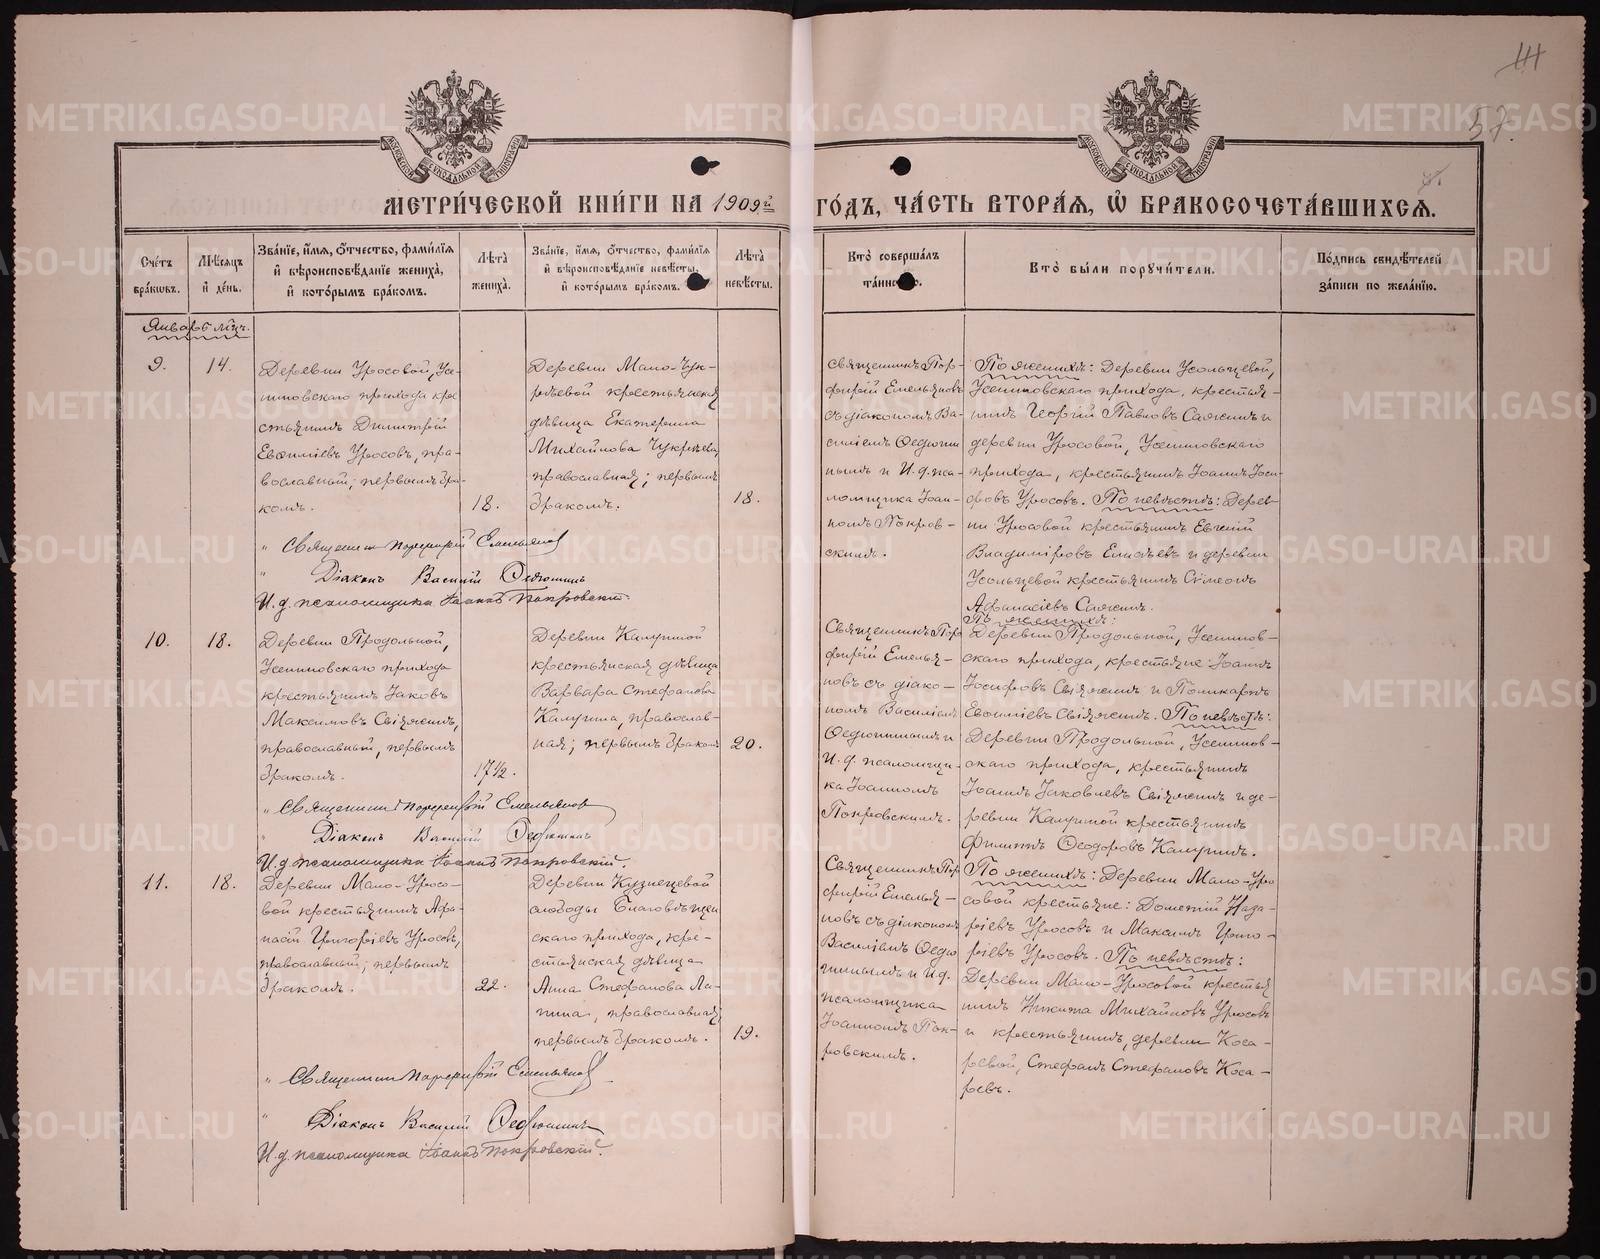 Ш
57.
МЕТРИ́ЧЕСКОЙ КНИ́ГИ НА 1909й ГО́ДЪ, ЧА́СТЬ ВТОРА́Я, Ѡ҆ БРАКОСОЧЕТА́ВШИХСЯ.
Сче́тъ бра́кѡвъ.
Мѣ́сяцъ и҆ де́нь.
Зва́нїе, и҆́мя, ѻ҆́тчество, фами́лїя и҆ вѣроисповѣ́данїе жениха̀, и҆ кото́рымъ бра́комъ.
Лѣта̀ жениха̀.
Зва́нїе, и҆́мя, ѻ҆́тчество, фами́лїя и҆ вѣроисповѣ́данїе невѣ́сты, и҆ кото́рымъ бра́комъ.
Лѣта̀ невѣ́сты.
Кто̀ соверша́лъ
Кто̀ бы́ли порꙋчи́тели.
По́дпись свидѣ́телей за́писи по жела́нїю.
Январь мѣц.
9.
14.
Деревни Уросовой, Усе-
ниновскаго прихода кре-
стьянинъ Димитрій
Евѳиміевъ Уросовъ, пра-
вославный; первымъ бра-
комъ.
18.
Деревни Мало-Чук-
рѣевой крестьянская
дѣвица Екатерина
Михайлова Чукрѣева,
православная; первымъ
бракомъ.
18.
Священникъ Пор-
фирій Емельяновъ
съ діакономъ Ва-
силіемъ Ѳедюши-
нымъ и И. д. пса-
ломщика Іоан-
номъ Покров-
скимъ.
По женихѣ: Деревни Усольцевой,
Усениновскаго прихода, крестья-
нинъ Георгій Павловъ Саяжинъ и
деревни Уросовой, Усениновскаго
прихода, крестьянинъ Іоаннъ Іоси-
фовъ Уросовъ. По невѣстѣ: Дерев-
ни Уросовой крестьянинъ Евгеній
Владиміровъ Елисѣевъ и деревни
Усольцевой крестьянинъ Сѵмеонъ
Афанасіевъ Саяжинъ.
" Священникъ Порфирій Емельянов
" Діаконъ Василій Ѳедюшинъ
И. д. псаломщика Іоаннъ Покровскій.
10.
18.
Деревни Продольной,
Усениновскаго прихода
крестьянинъ Іаковъ
Максимовъ Свіяжинъ,
православный, первымъ
бракомъ.
17 1/2.
Деревни Калугиной
крестьянская дѣвица
Варвара Стефанова
Калугина, православ-
ная; первымъ бракомъ
20.
Священникъ Пор-
фирій Емелья-
новъ съ діако-
номъ Василіемъ
Ѳедюшинымъ и
И. д. псаломщи-
ка Іоанномъ
Покровскимъ.
По женихѣ:
Деревни Продольной, Усенинов-
скаго прихода, крестьяне: Іоаннъ
Іосифовъ Свіяжинъ и Поликарпъ
Евѳиміевъ Свіяжинъ. По невѣстѣ:
Деревни Продольной, Усенинов-
скаго прихода, крестьянинъ
Іоаннъ Іаковлевъ Свіяжинъ и де-
ревни Калугиной крестьянинъ
Филиппъ Ѳеодоровъ Калугинъ.
" Священникъ Порфирій Емельянов
" Діаконъ Василій Ѳедюшинъ
И. д. псаломщика Іоаннъ Покровскій.
11.
18.
Деревни Мало-Уросо-
вой крестьянинъ Афа-
насій Григоріевъ Уросовъ,
православный; первымъ
бракомъ.
22.
Деревни Кузнецовой
слободы Благовѣщен
скаго прихода, кре-
стьянская дѣвица
Анна Стефанова Ла-
пина, православная;
первымъ бракомъ.
19.
Священникъ Пор
фирій Емелья-
новъ съ діакономъ
Василіемъ Ѳедю
шинымъ и И. д.
псаломщика
Іоанномъ Пок-
ровскимъ.
По женихѣ: Деревни Мало-Уро
совой крестьяне: Дометій Наза-
ріевъ Уросовъ и Максимъ Григо-
ріевъ Уросовъ. По невѣстѣ:
Деревни Мало-Уросовой крестья
нинъ Никита Михайловъ Уросовъ
и крестьянинъ, деревни Коса-
ревой, Стефанъ Стефановъ Коса-
ревъ.
" Священникъ Порфирій Емельянов
" Діаконъ Василій Ѳедюшинъ
И. д. псаломщика Іоаннъ Покровскій.
METRIKI.GASO-URAL.RU